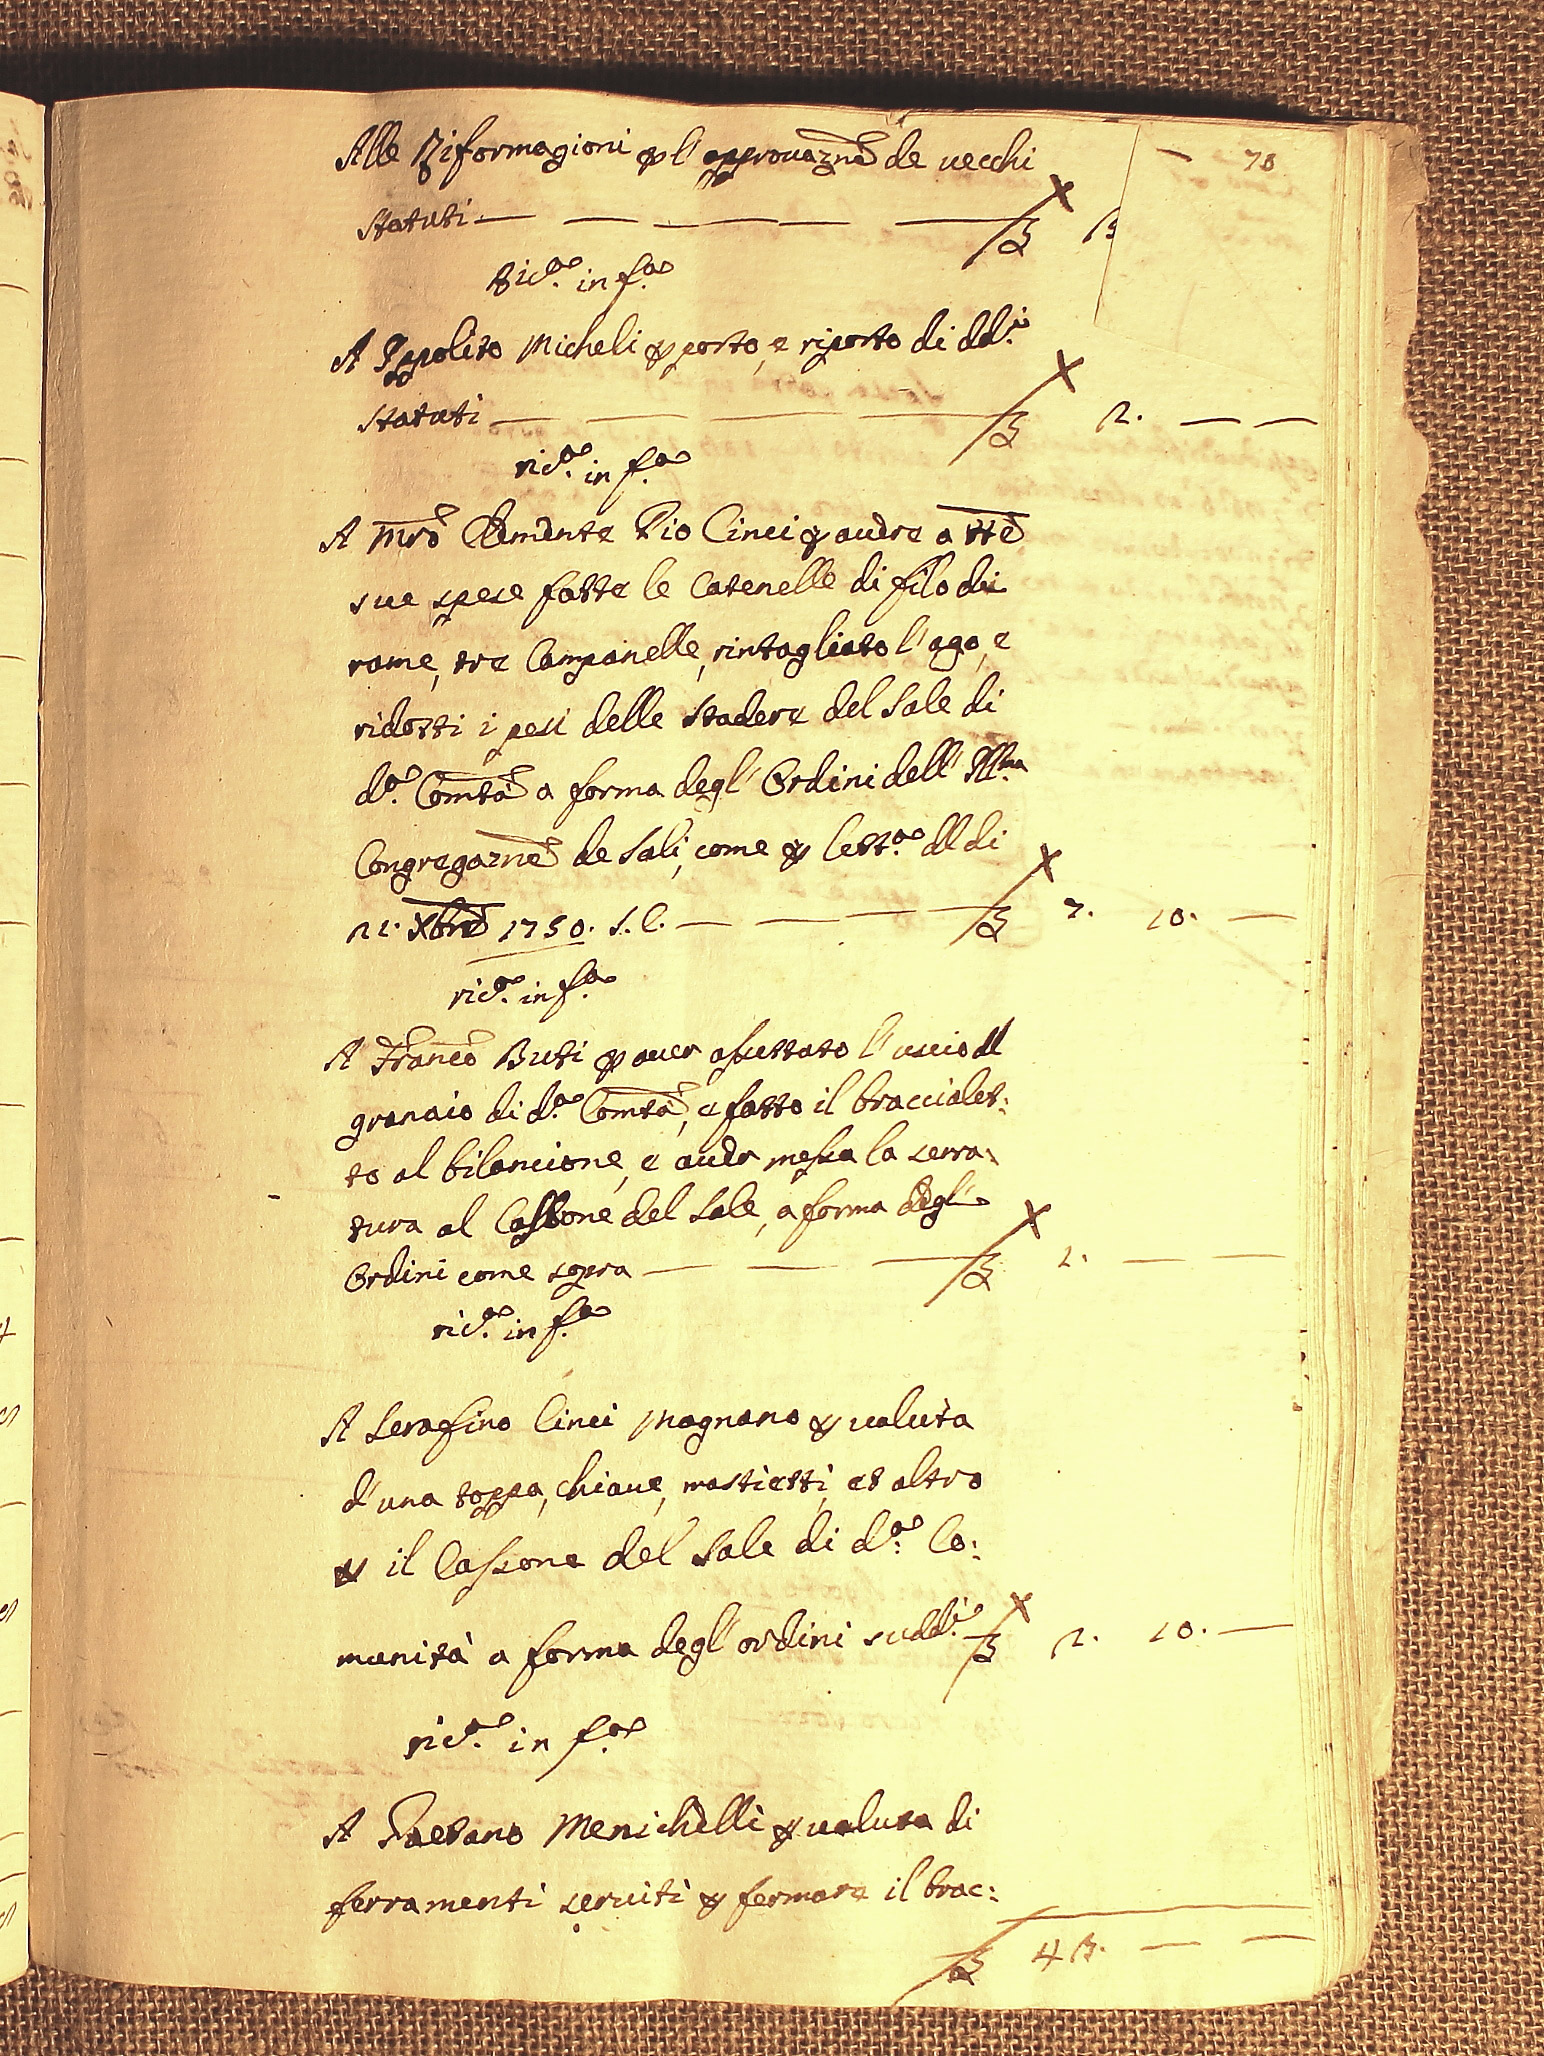 78
Alle Riformagioni p l' approuazne de uecchi
Statuti — — — — ₤
Ric.ta in f.a
A Ippolito Micheli p porto, e riporto di dd.i
Statuti — — — — ₤ 2. — —
ric.ta in f.a
A Mro Clemente Pio Cinci p auere a tte
sue spese fatte le Catenelle di filo di
rame, tre Campanelle, rintagliato l' ago, e
ridotti i pesi delle Stadere del Sale di
d.a Comtà a forma degl' Ordini dell' Ill.ma
Congregazne de Sali, come p lett.a dl di
21. Xbre 1750. S. C. — — — — ₤ 7. 10. —
ric.ta in f.a
A Franco Buti p auer assettato l' uscio dl
granaio di d.a Comtà, e fatto il braccialet:
to al bilancione, e auer messa la serra:
tura al Cassone del Sale, a forma degl'
Ordini come sopra — — — ₤ 1. — —
ric.ta in f.a
A Serafino Cinci Magnano p ualuta
d' una toppa, chiaue, mastietti, et altro
p il Cassone del Sale di d.a Co:
munità a forma degl' ordini sudd.i ₤ 2. 10. —
ric.ta in f.a
A Gaetano Menichelli p ualuta di
ferramenti seruiti p fermare il brac:
₤ — —